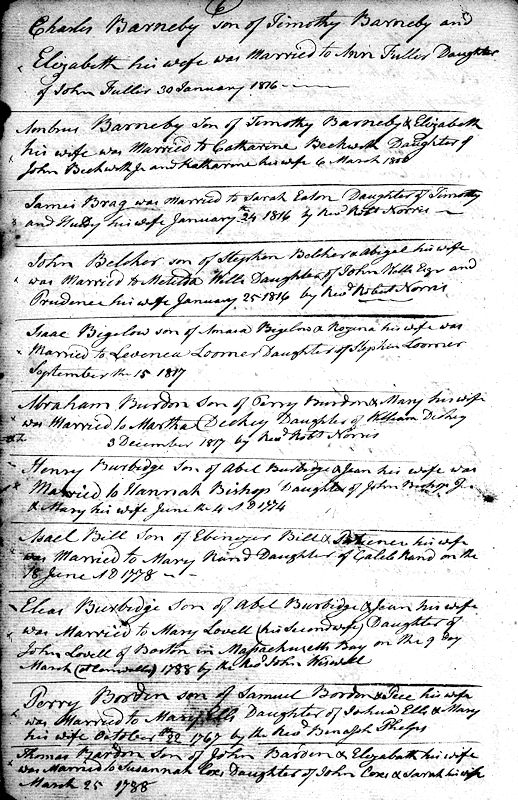 6
Charles Barneby son of Timothy Barneby and
Elizabeth his wife was Married to Ann Fuller Daughter
of John Fuller 30 January 1816
Ambrus Barneby Son of Timothy Barneby & Elizabeth
his wife was Married to Catharine Beckwith Daughter of
John Beckwith Jr and Katharine his wife 6 March
James Brag was Married to Sarah Eaton Daughter of Timothy
and his wife January 24 1816 by Revd Robt Norris
John Belcher son of Stephen Belcher & Abigel his wife
was Married to Wells Daughter of John Wells Esqr and
Prudence his wife January 25 1816 by Revd Robert Norris
Isaac Bigelow son of Amasa Bigelow & Rogena his wife was
Married to Levenea Loomer Daughter of Stephen Loomer
September the 15 1817
Abraham Burdon Son of Perry Burdon & Mary his wife
was Married to Martha Dickey Daughter of William Dickey
3 December 1817 by Revd Robt Norris
Henry Burbidge Son of Abel Burbidge & Jean his wife was
Married to Hannah Bishop Daughter of John Bishop Jr
& Mary his wife June the 4 AD 1774
Asael Bill Son of Ebenezer Bill & his wife
was Married to Mary Rand Daughter of Caleb Rand on the
18 June AD 1778
Elias Burbidge Son of Abel Burbidge & Jean his wife
was Married to Mary Lovell (his Second wife) Daughter of
John Lovell of Boston in Massachusetts Bay on the 9 Day
March 1788 by the Revd John Wiswell
Perry Borden son of Samuel Borden & Peec his wife
was Married to Mary Ells Daughter of Joshua Ells & Mary
his wife October the 22 1767 by the Revd Benajah Phelps
Thomas Bardon Son of John Barden & Elizabath his wife
was Married to Susannah Coxs Daughter of John Coxs & Sarah his wife
March 25 1788